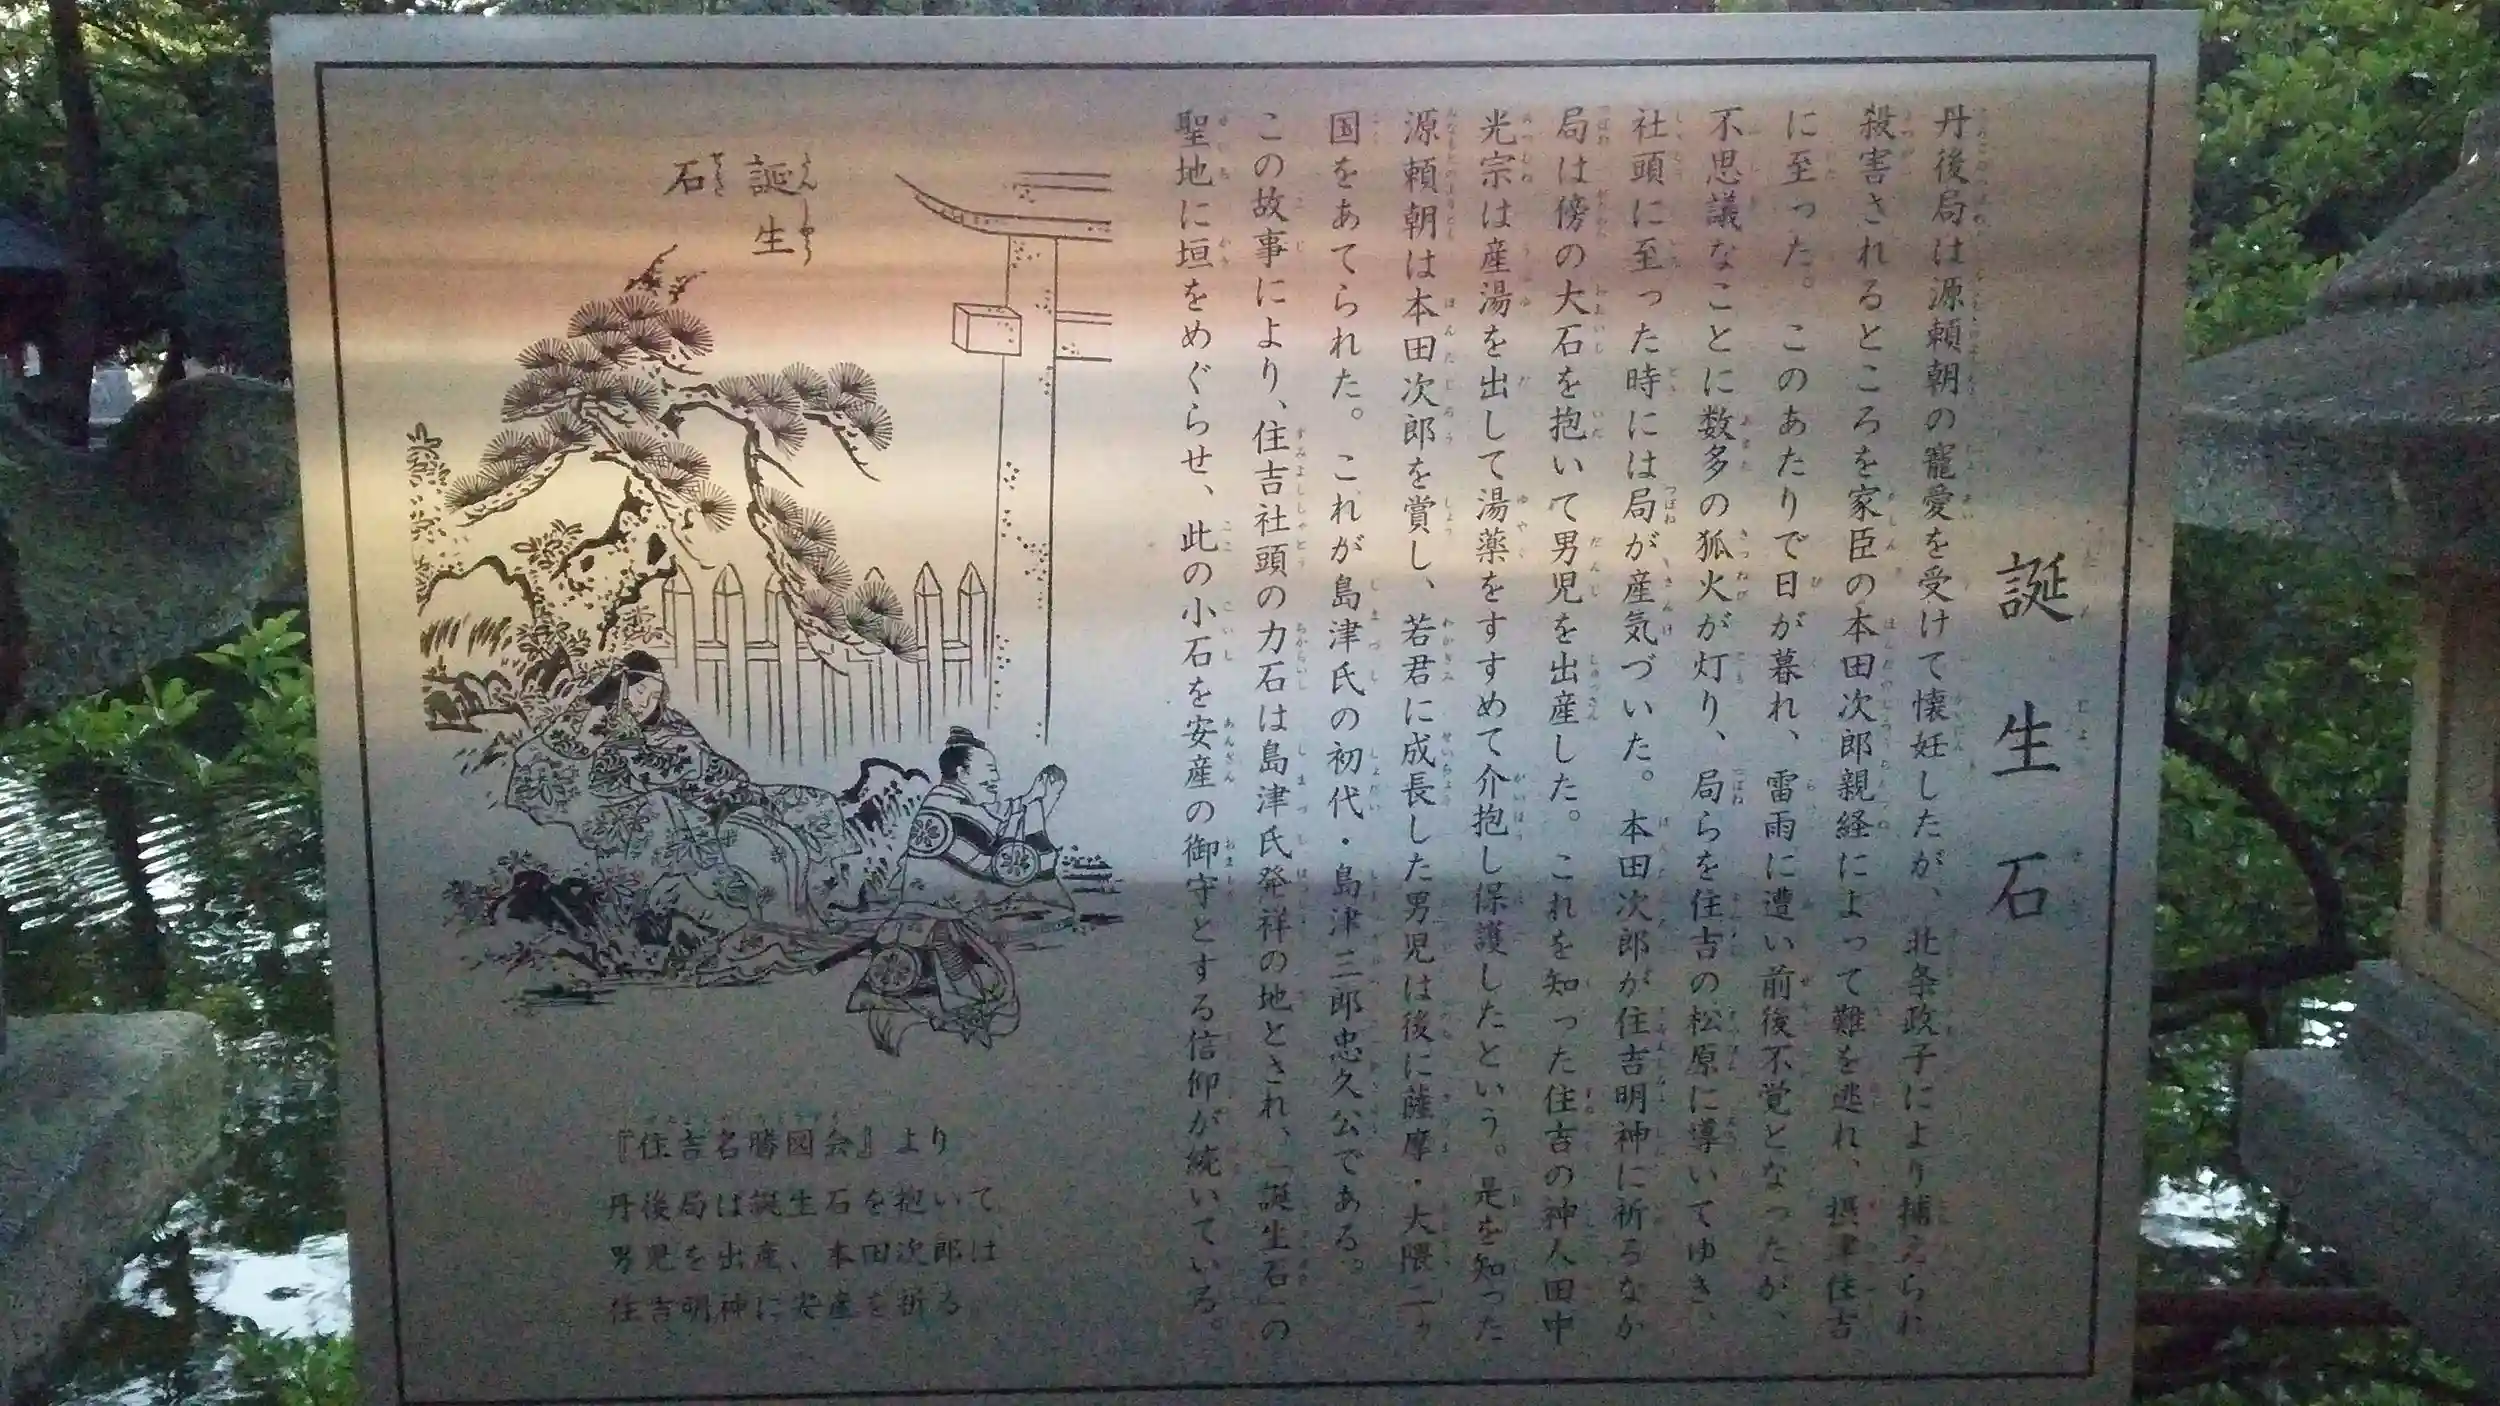 誕生石
丹後局は源頼朝の寵愛を受けて懐妊したが、北条政子により捕えられ
殺害されるところを家臣の本田次郎親経によって難を逃れ、摂津住吉
に至った。このあたりで日が暮れ、雷雨に遭い前後不覚となったが、
不思議なことに数多の狐火が灯り、局らを住吉の松原に導いてゆき、
社頭に至った時には局が産気づいた。本田次郎が住吉明神に祈るなか
局は傍の大石を抱いて男児を出産した。これを知った住吉の神人田中
光宗は産湯を出して湯薬をすすめて介抱し保護したという。是を知った
源頼朝は本田次郎を賞し、若君に成長した男児は後に薩摩・大隈二ヶ
国をあてられた。これが島津氏の初代・島津三郎忠久公である。
この故事により、住吉社頭の力石は島津氏発祥の地とされ、「誕生石」の
聖地に垣をめぐらせ、此の小石を安産の御守とする信仰が続いている。
誕生
石
『住吉名勝図会』より
丹後局は誕生石を抱いて、
男児を出産、本田次郎は
住吉明神に安産を祈る